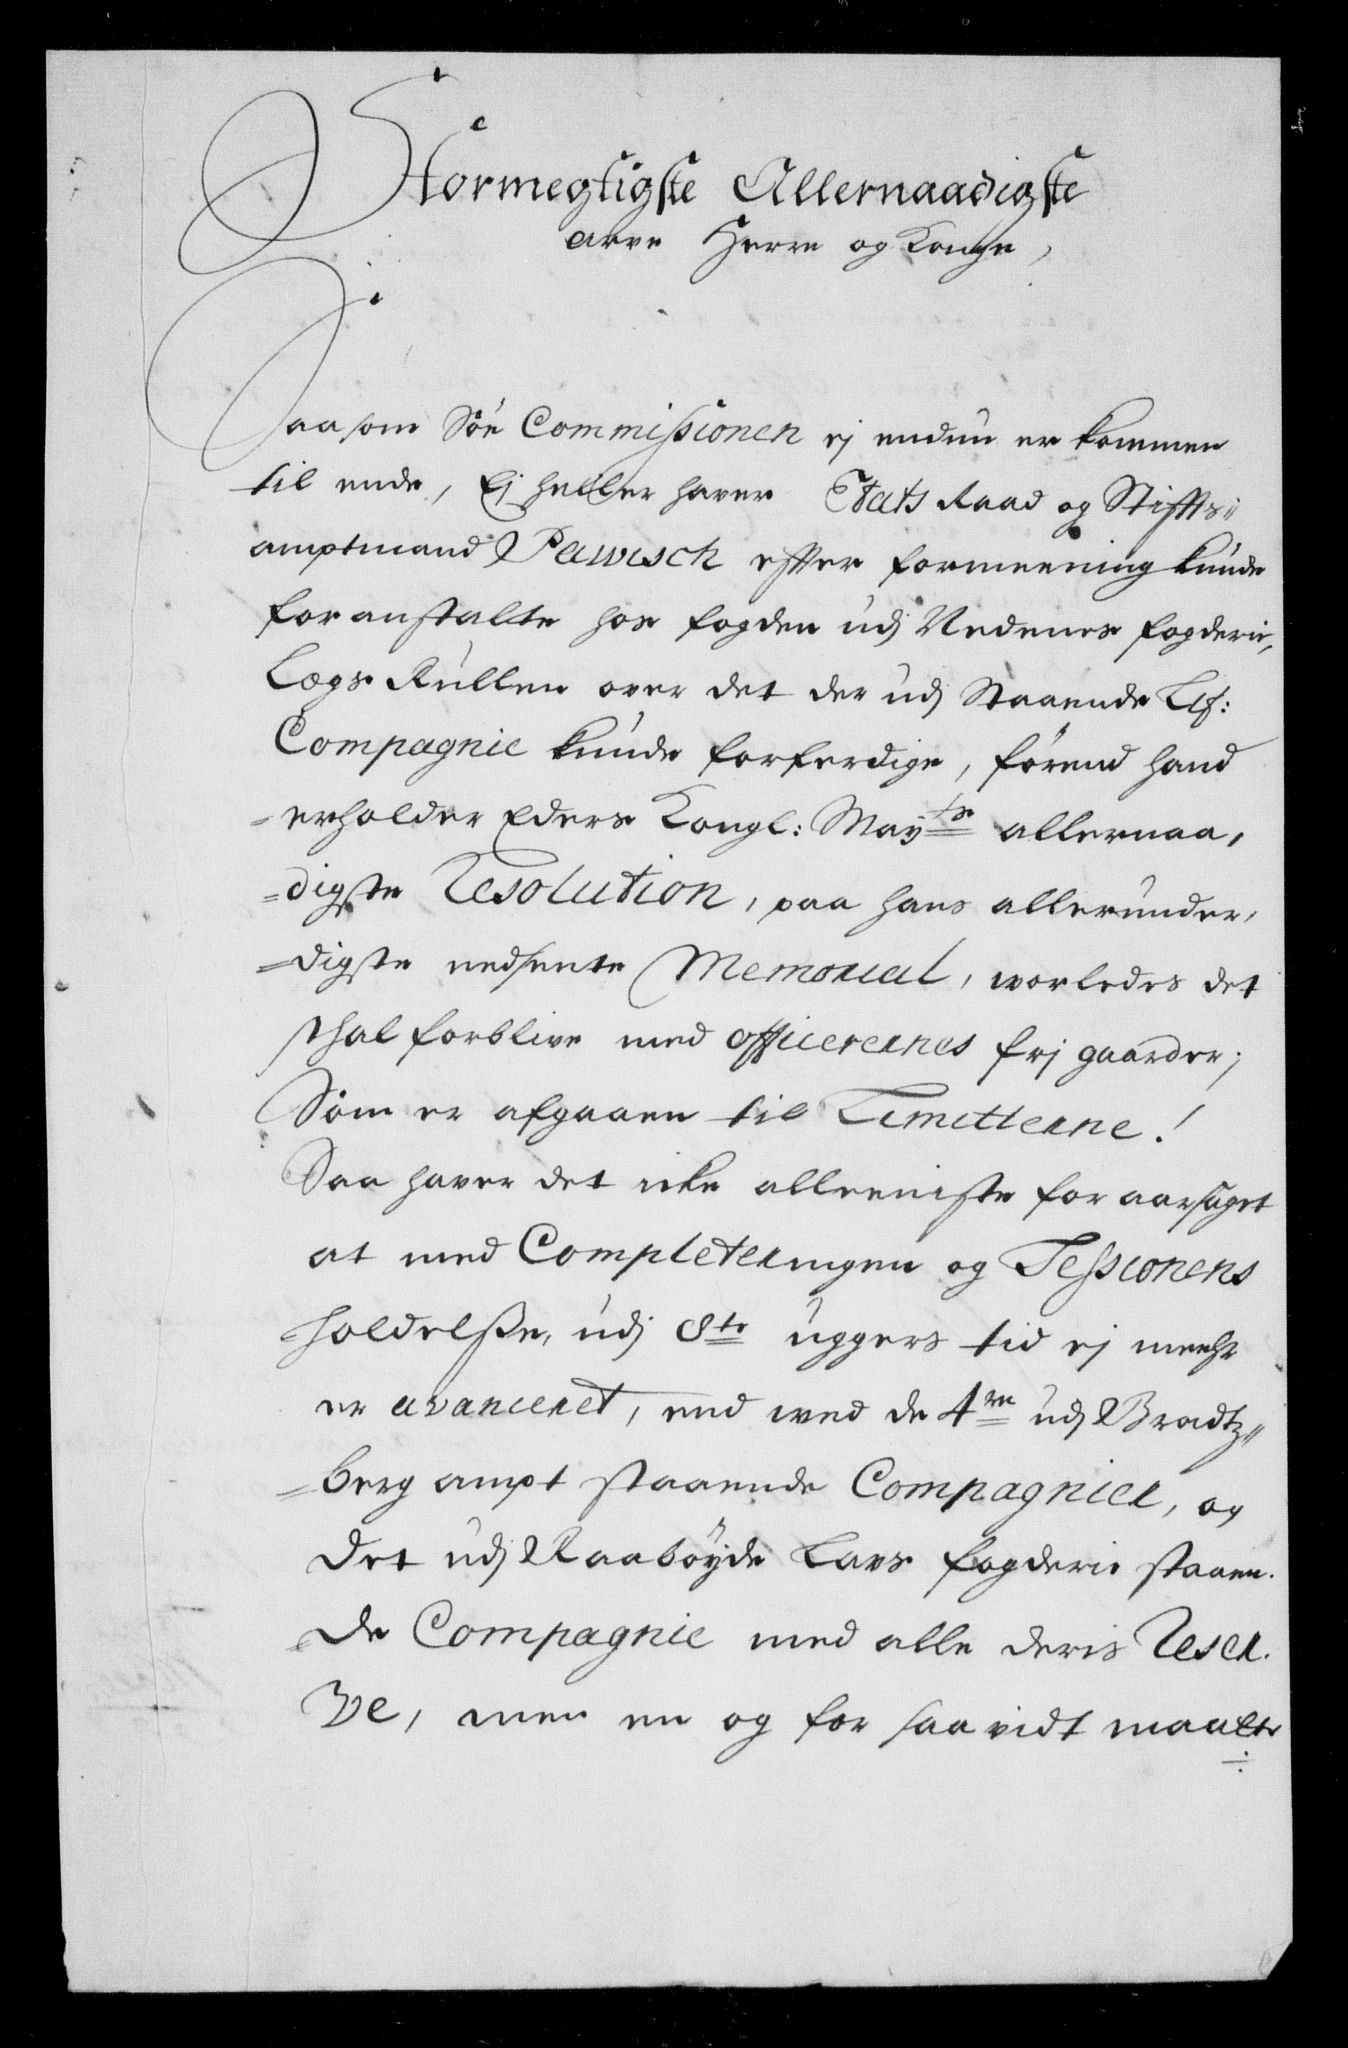 Stormegtigste Allernaadigste
arve Herre og Konge,
Saasom Söe Commissionen ej endnu er kommen
til ende, Ej heller haver Etats Raad og Stiffts=
amptmand Pawisch effter formeening kunde
foranstalte hos fogden udj Nedenes fogderie,
Lægs Rullen over det der udj Staaende Lif:
Compagnie kunde forferdige, förend hand
=erholder Eders Kongl: Mayts allernaa,
=digste Resolution, paa hans allerunder,
=digste nedsente Memorial, vorledes det
skal forblive med officerernes frj gaarder;
Som er afgaaen til Limitterne!
Saa haver det icke alleeniste foraarsaget
at med Completeringen og Sessionens
holdelsse, udj 8te uggers tid ej meehr
er avanceret, end wed de 4re udj Bradtz=
=berg ampt staaende Compagnier, og
det udj Raaböyde Lavs fogderie staaen.
de Compagnie med alle deris Reser.
ve, men en og for saa vidt maatte